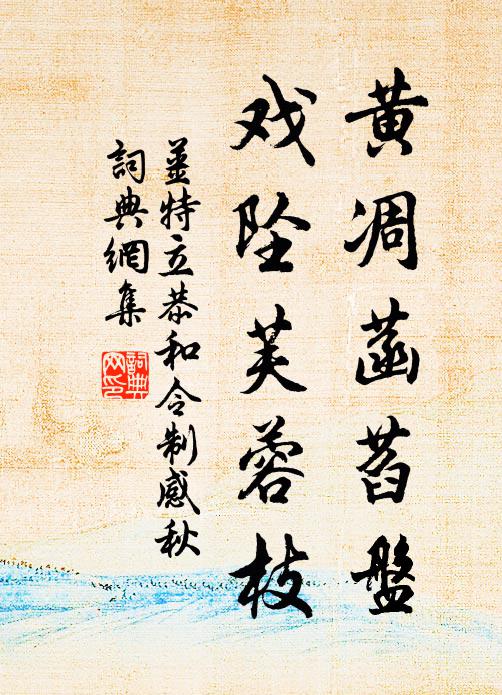 黄凋菡萏盤
戏坠芙蓉枝
薑特立恭和令制感秋
詞典網集
詞典网印